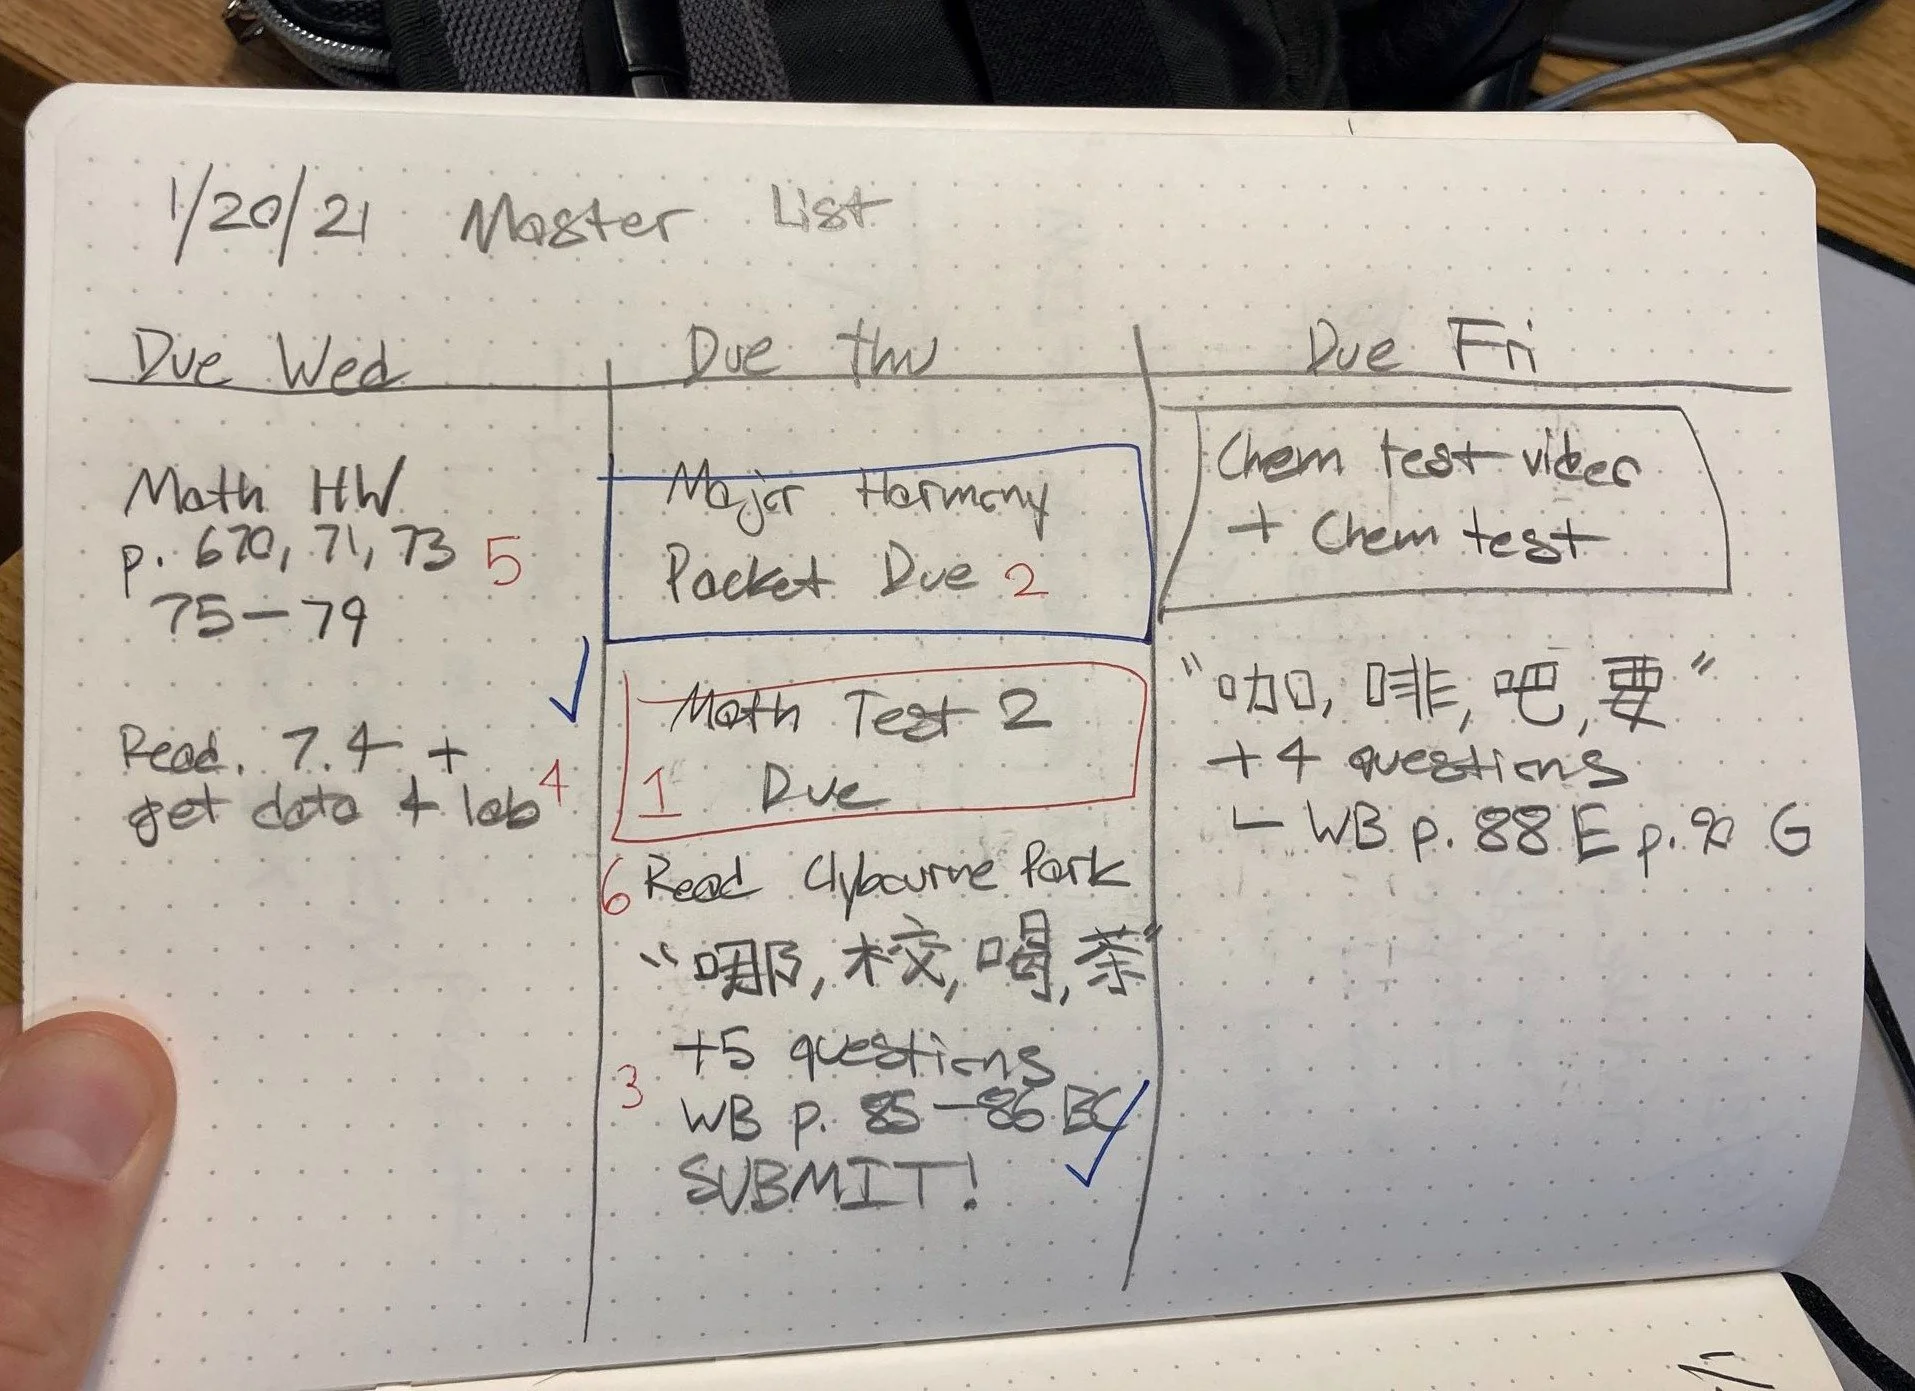 1/20/21 Master List
Due Wed
Math HW
p. 670, 71, 73 5
75-79
Read. 7.4 +
get data + lab 4
Due thu
Major Harmony
Packet Due 2
Math Test 2
1 Due
6 Read Clybourne Park
"哪, 校, 喝, 茶"
+5 questions
3
WB p. 85-86 BC
SUBMIT!
Due Fri
Chem test video
+ Chem test
"咖, 啡, 吧, 要"
+4 questions
WB p. 88 E p. 90 G